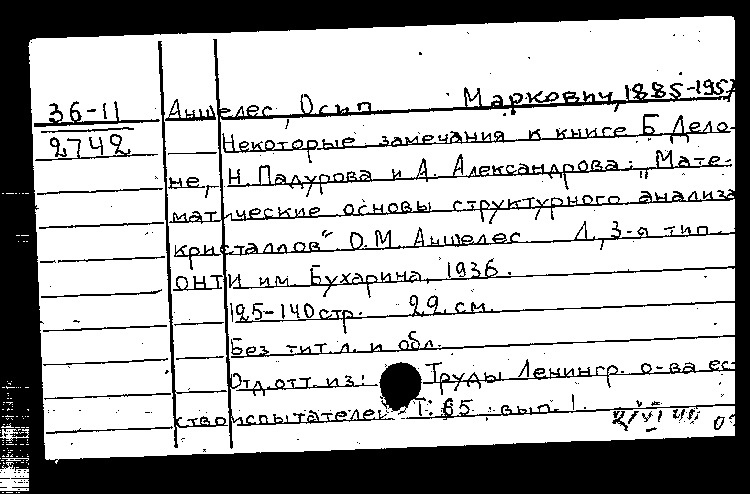 36-11 Аншелес, Осип Маркович, 1885-1957
2742 Некоторые замечания к книсе Б Дело-
не, Н. Падурова и А. Александрова: „Мате-
матические основы структурного анализа
кристаллов“ О.М. Аншелес Л, 3-я тип.
ОНТИ им. Бухарина, 1936.
125-140 стр. 22 см.
Без тит. л. и обл.
Отд. отт. из: Труды Ленингр. о-ва ес-
ствоиспытателей Т: 65 вып. 1.